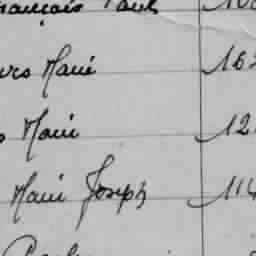 rançois Paul
urs Marie 162
s Marie 12
Marie Joseph 114